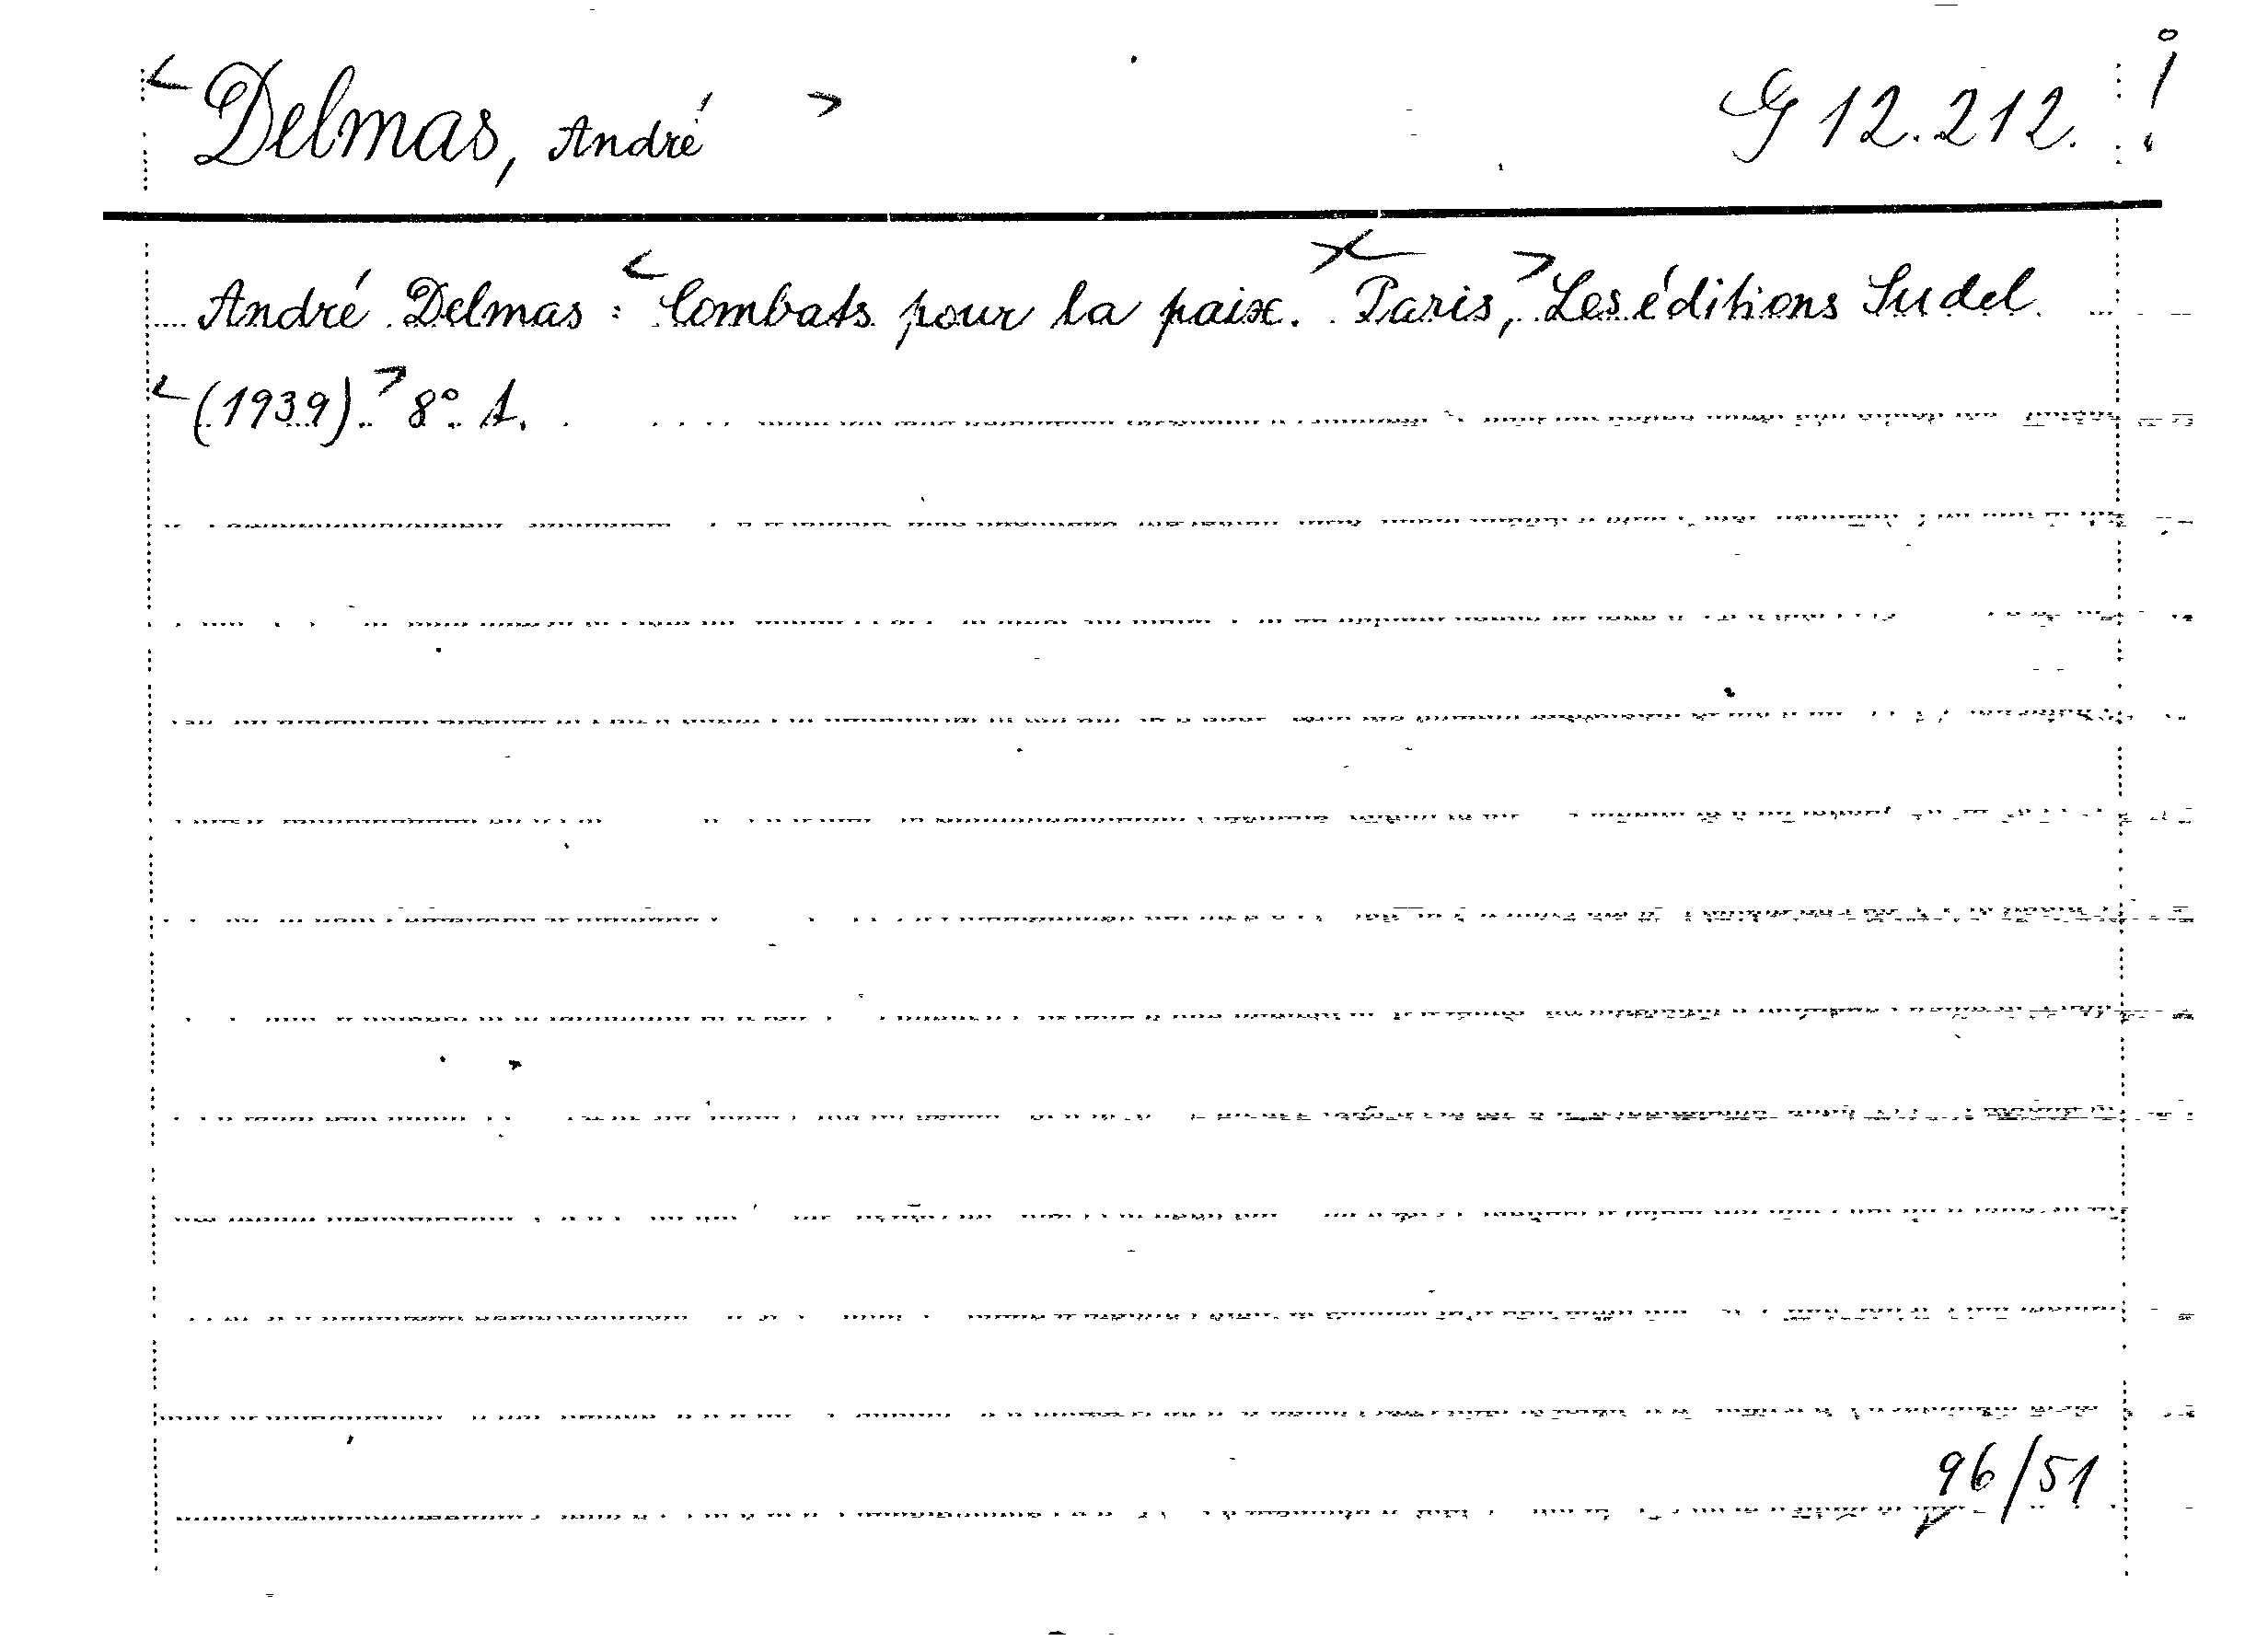 Delmas, André G 12.212.
André Delmas: Combats pour la paix. Paris, Les éditions Sudel
(1939). 8°. A.
96/51